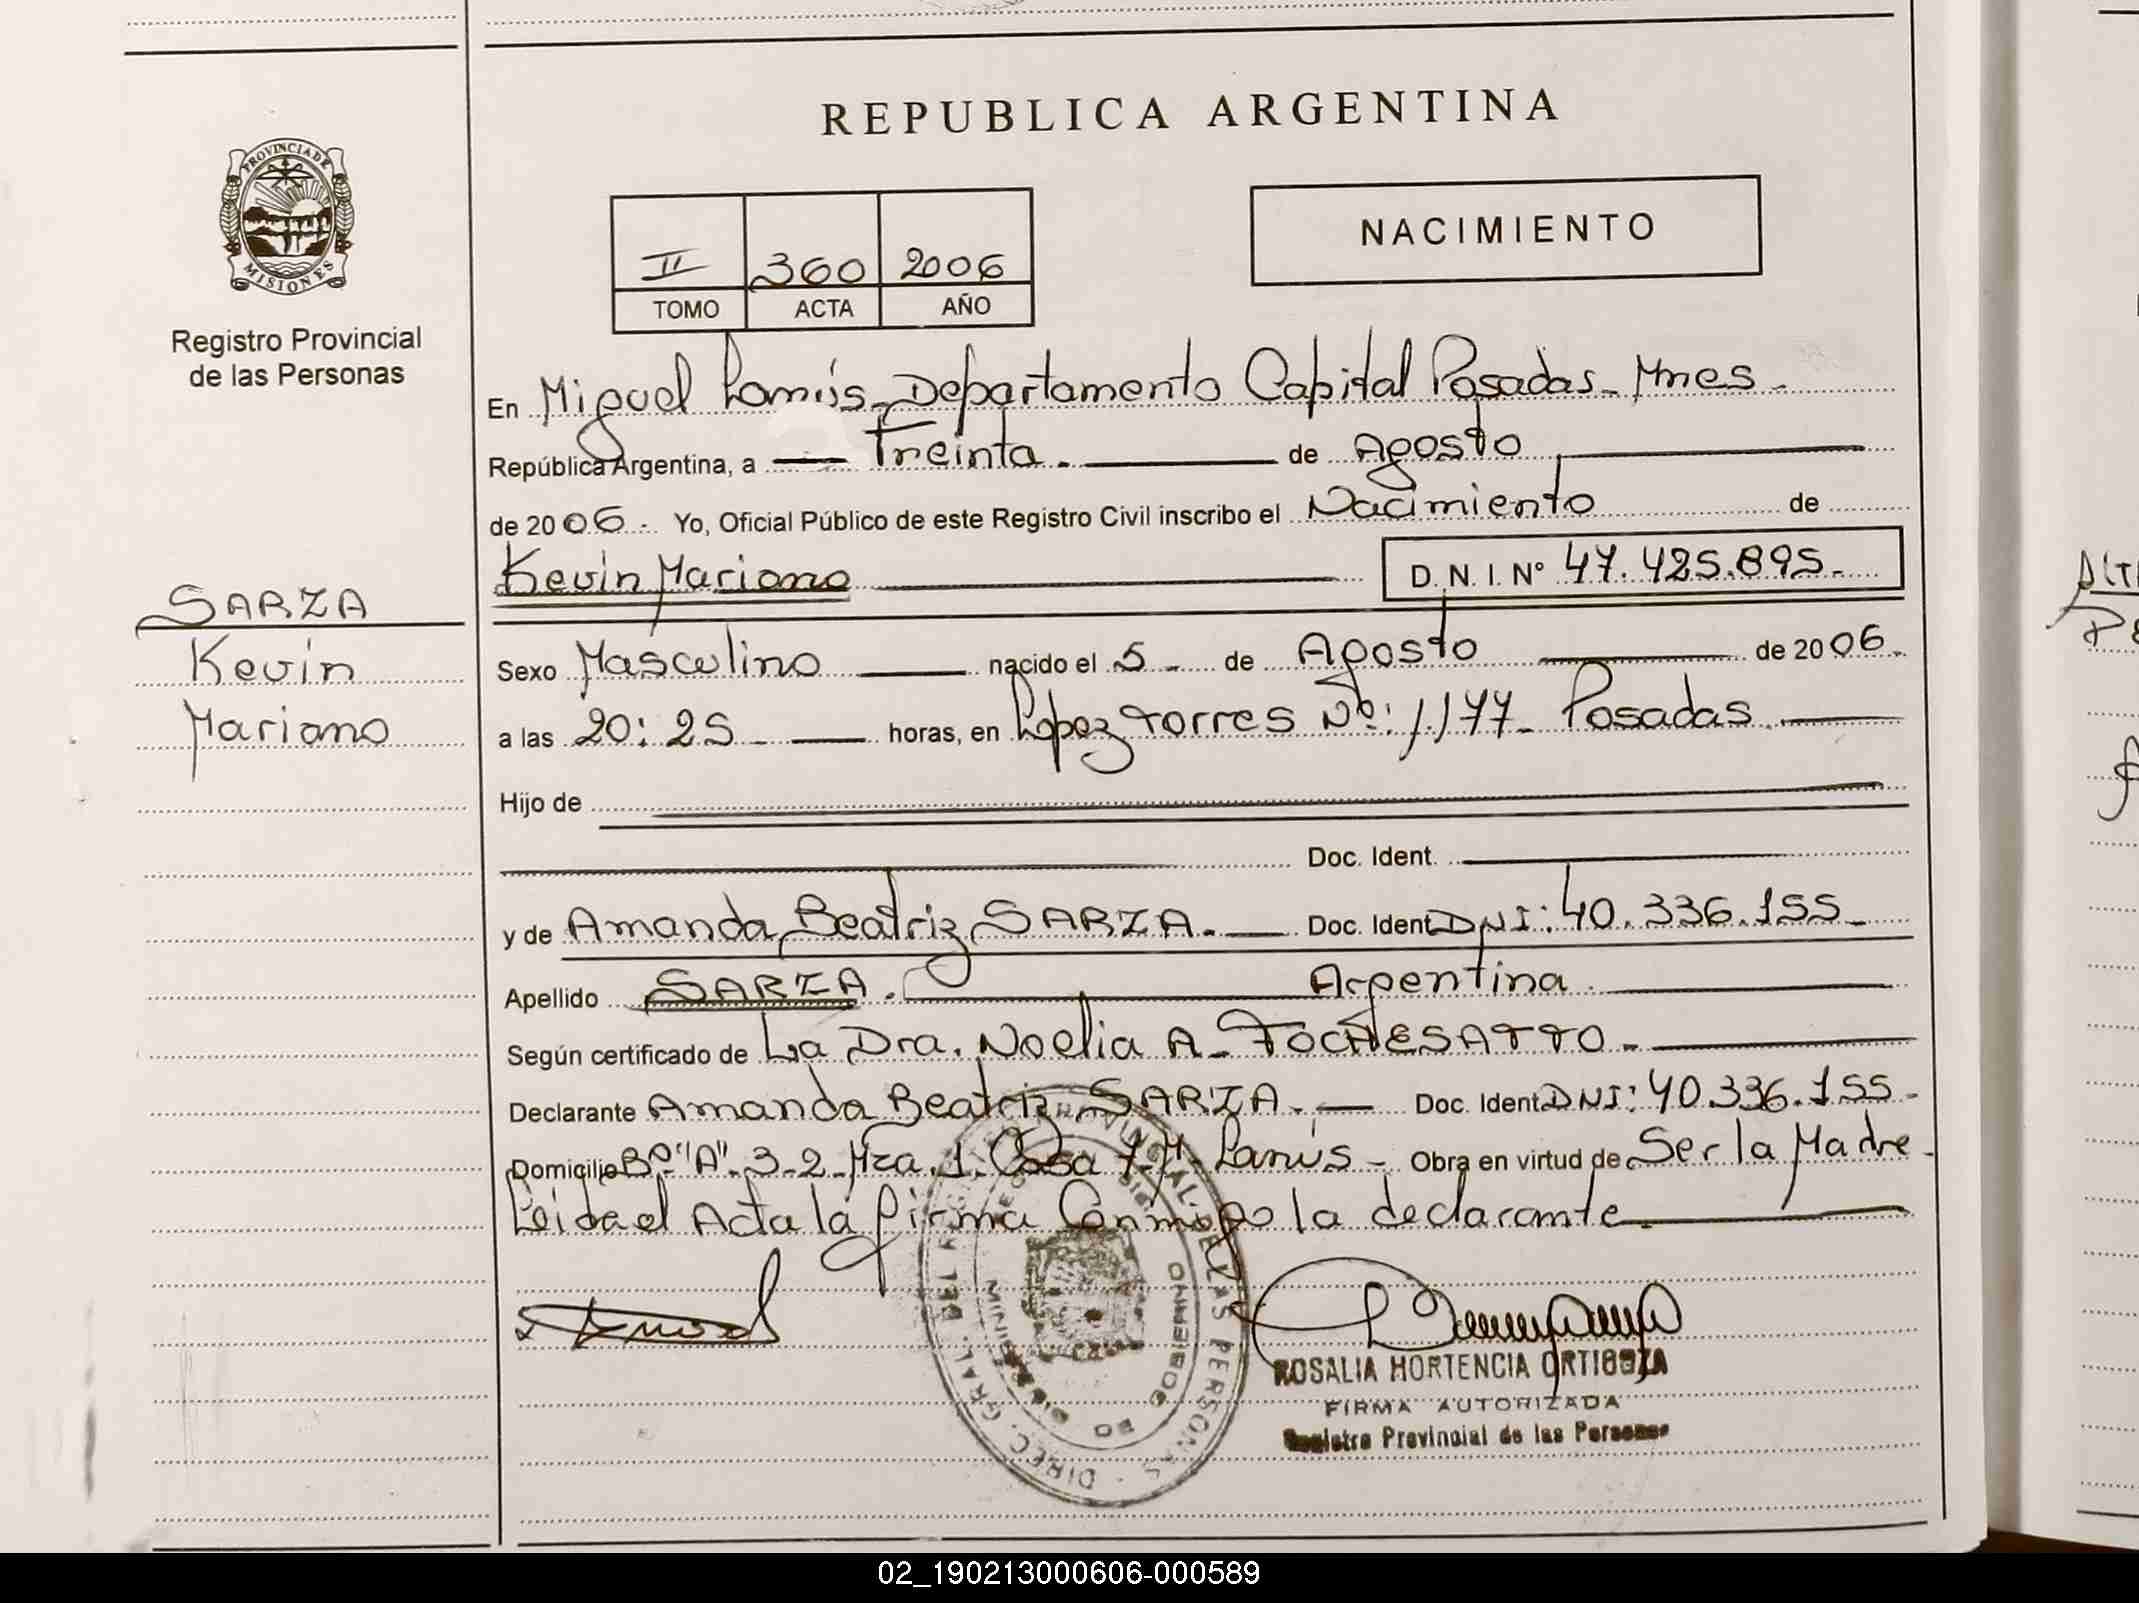 REPUBLICA ARGENTINA
PROVINCIA DE
MISIONES
Registro Provincial
de las Personas
II 360 2006
TOMO ACTA AÑO
NACIMIENTO
En Miguel Lanús - Departamento Capital Posadas - Mnes -
República Argentina, a Treinta. de Agosto
de 2006.- Yo, Oficial Público de este Registro Civil inscribo el Nacimiento de
Kevin Mariano D. N. I. N° 47.425.895.-
SARZA
Kevin
Mariano
Sexo Masculino nacido el 5 - de Agosto de 2006.
a las 20:25 horas, en Lopez Torres Nº: 1177 - Posadas
Hijo de
Doc. Ident.
y de Amanda Beatriz SARZA. - Doc. Ident DNI: 40.336.155 -
Apellido SARZA. Argentina
Según certificado de La Dra. Noelia A. TOCHESATTO -
Declarante Amanda Beatriz SARZA. - Doc. Ident DNI: 40.336.155 -
Domicilio Bº "A" 3-2 Mza. 1 Casa 7 M. Lanús - Obra en virtud de Ser la Madre -
Leida el Acta la firma Conmigo la declarante.
DIREC. GRAL. DEL PERSONAS
ROSALIA HORTENCIA ORTIGOZA
FIRMA AUTORIZADA
Registro Provincial de las Personas
02_190213000606-000589